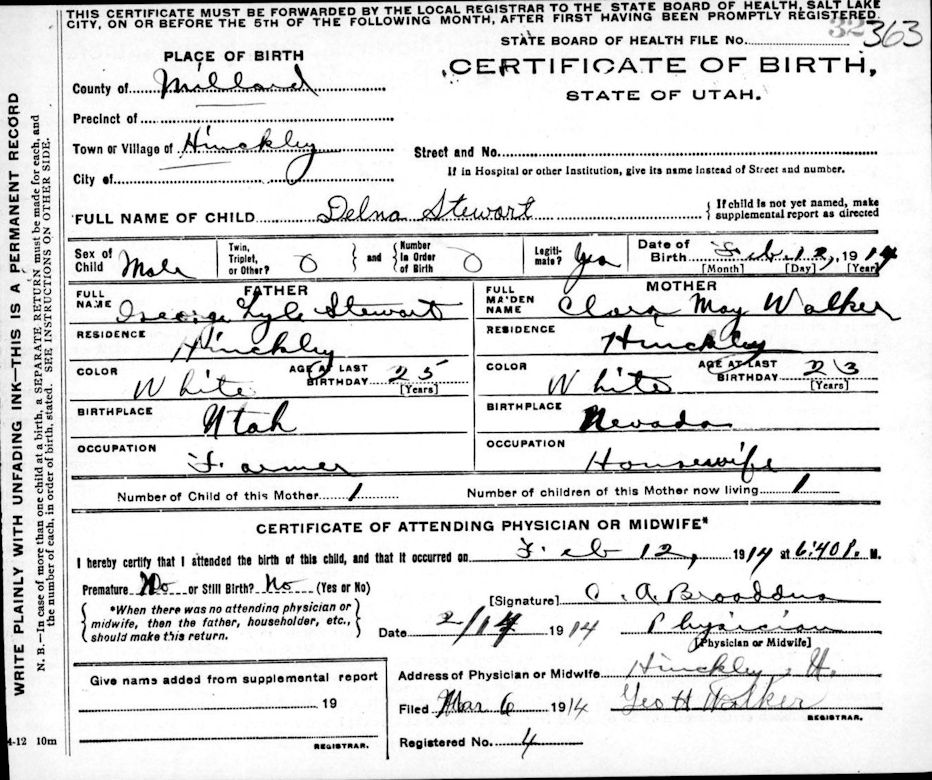 THIS CERTIFICATE MUST BE FORWARDED BY THE LOCAL REGISTRAR TO THE STATE BOARD OF HEALTH, SALT LAKE
CITY, ON OR BEFORE THE 5TH OF THE FOLLOWING MONTH, AFTER FIRST HAVING BEEN PROMPTLY REGISTERED.
STATE BOARD OF HEALTH FILE No. 363
PLACE OF BIRTH
CERTIFICATE OF BIRTH,
STATE OF UTAH.
County of Millard
Precinct of
Town or Village of Hinckley
Street and No.
City of
If in Hospital or other Institution, give its name Instead of Street and number.
FULL NAME OF CHILD Delna Stewart { If child is not yet named, make supplemental report as directed
Sex of Child Male
Twin, Triplet, or Other? 0 } and { Number in Order of Birth 0
Legitimate? Yes
Date of Birth Feb. 12, 1914
[Month] [Day] [Year]
FATHER
FULL NAME George Lyle Stewart
RESIDENCE Hinckley
COLOR White AGE AT LAST BIRTHDAY 25 [Years]
BIRTHPLACE Utah
OCCUPATION Farmer
MOTHER
FULL MAIDEN NAME Clara May Walker
RESIDENCE Hinckley
COLOR White AGE AT LAST BIRTHDAY 23 [Years]
BIRTHPLACE Nevada
OCCUPATION Housewife
Number of Child of this Mother 1 Number of children of this Mother now living 1
CERTIFICATE OF ATTENDING PHYSICIAN OR MIDWIFE*
I hereby certify that I attended the birth of this child, and that it occurred on Feb 12, 1914 at 6:40 P. M.
Premature No or Still Birth? No (Yes or No)
{ *When there was no attending physician or midwife, then the father, householder, etc., should make this return. }
[Signature] C. A. Broaddus
Date 2/14 1914 Physician
[Physician or Midwife]
Address of Physician or Midwife Hinckley, U.
Give name added from supplemental report
19
REGISTRAR.
Filed Mar 6 1914 Geo H Walker
REGISTRAR.
Registered No. 4
4-12 10m
WRITE PLAINLY WITH UNFADING INK—THIS IS A PERMANENT RECORD
N. B.—In case of more than one child at a birth, a SEPARATE RETURN must be made for each, and
the number of each, in order of birth, stated. SEE INSTRUCTIONS ON OTHER SIDE.